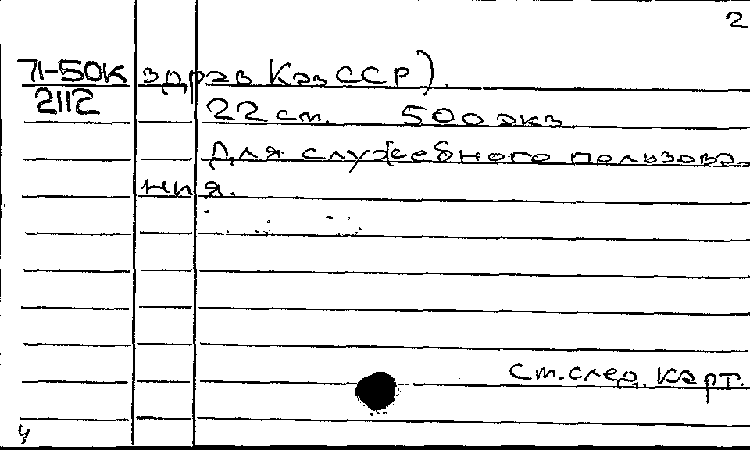 2
71-50К здрав КазССР).
2112 22 см. 500 экз.
Для служебного пользова-
ния.
См. след. карт.
4